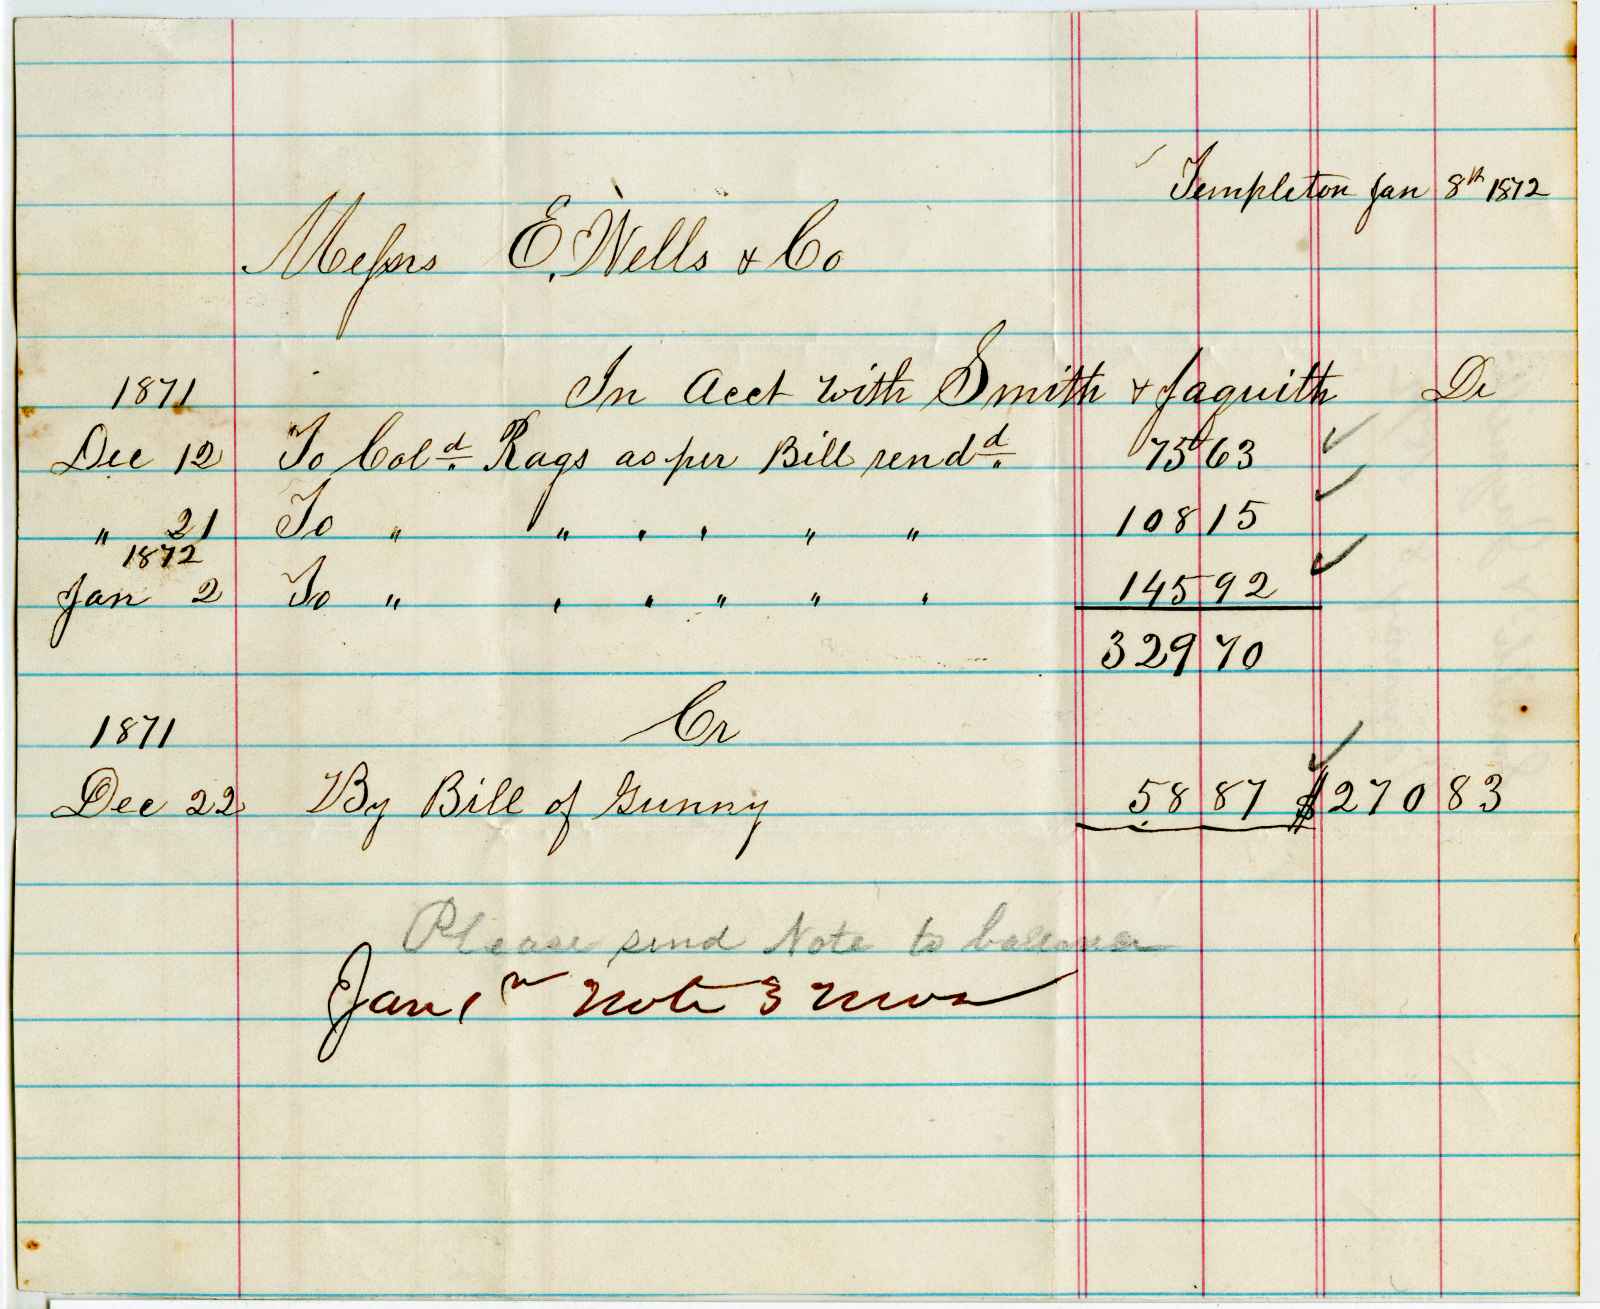 Templeton Jan 8th 1872
Messrs E. Wells & Co
1871 In acct with Smith & Jaquith Dr
Dec 12 To Cold. Rags as per Bill rendd. 75 63
" 21 To " " " " " " 108 15
1872
Jan 2 To " " " " " " 145 92
329 70
1871 Cr
Dec 22 By Bill of Gunny 58 87 $270 83
Please send Note to balance
Jan 1 Note 3 mos